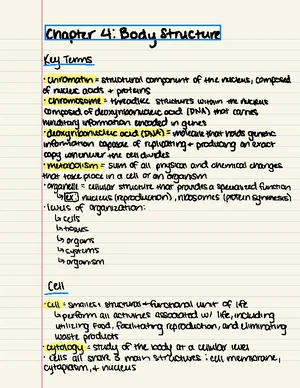 Chapter 4: Body Structure
Key Terms
• chromatin = structural component of the nucleus, composed
of nucleic acids + proteins
• chromosome = threadlike structures within the nucleus
composed of deoxyribonucleic acid (DNA) that carries
hereditary information encoded in genes
• deoxyribonucleic acid (DNA) = molecule that holds genetic
information capable of replicating + producing an exact
copy whenever the cell divides
• metabolism = sum of all physical and chemical changes
that take place in a cell or an organism
• organelle = cellular structure that provides a specialized function
↳ ex: nucleus (reproduction), ribosomes (protein synthesis)
• levels of organization:
↳ cells
↳ tissues
↳ organs
↳ systems
↳ organism
Cell
• cell = smallest structural + functional unit of life
↳ perform all activities associated w/ life, including
utilizing food, facilitating reproduction, and eliminating
waste products
• cytology = study of the body at a cellular level
• cells all share 3 main structures: cell membrane,
cytoplasm, + nucleus